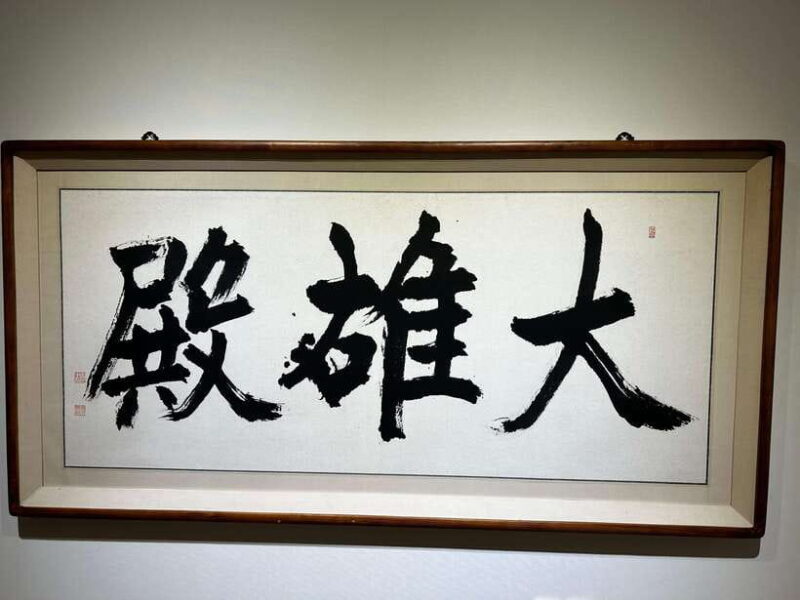 大雄殿